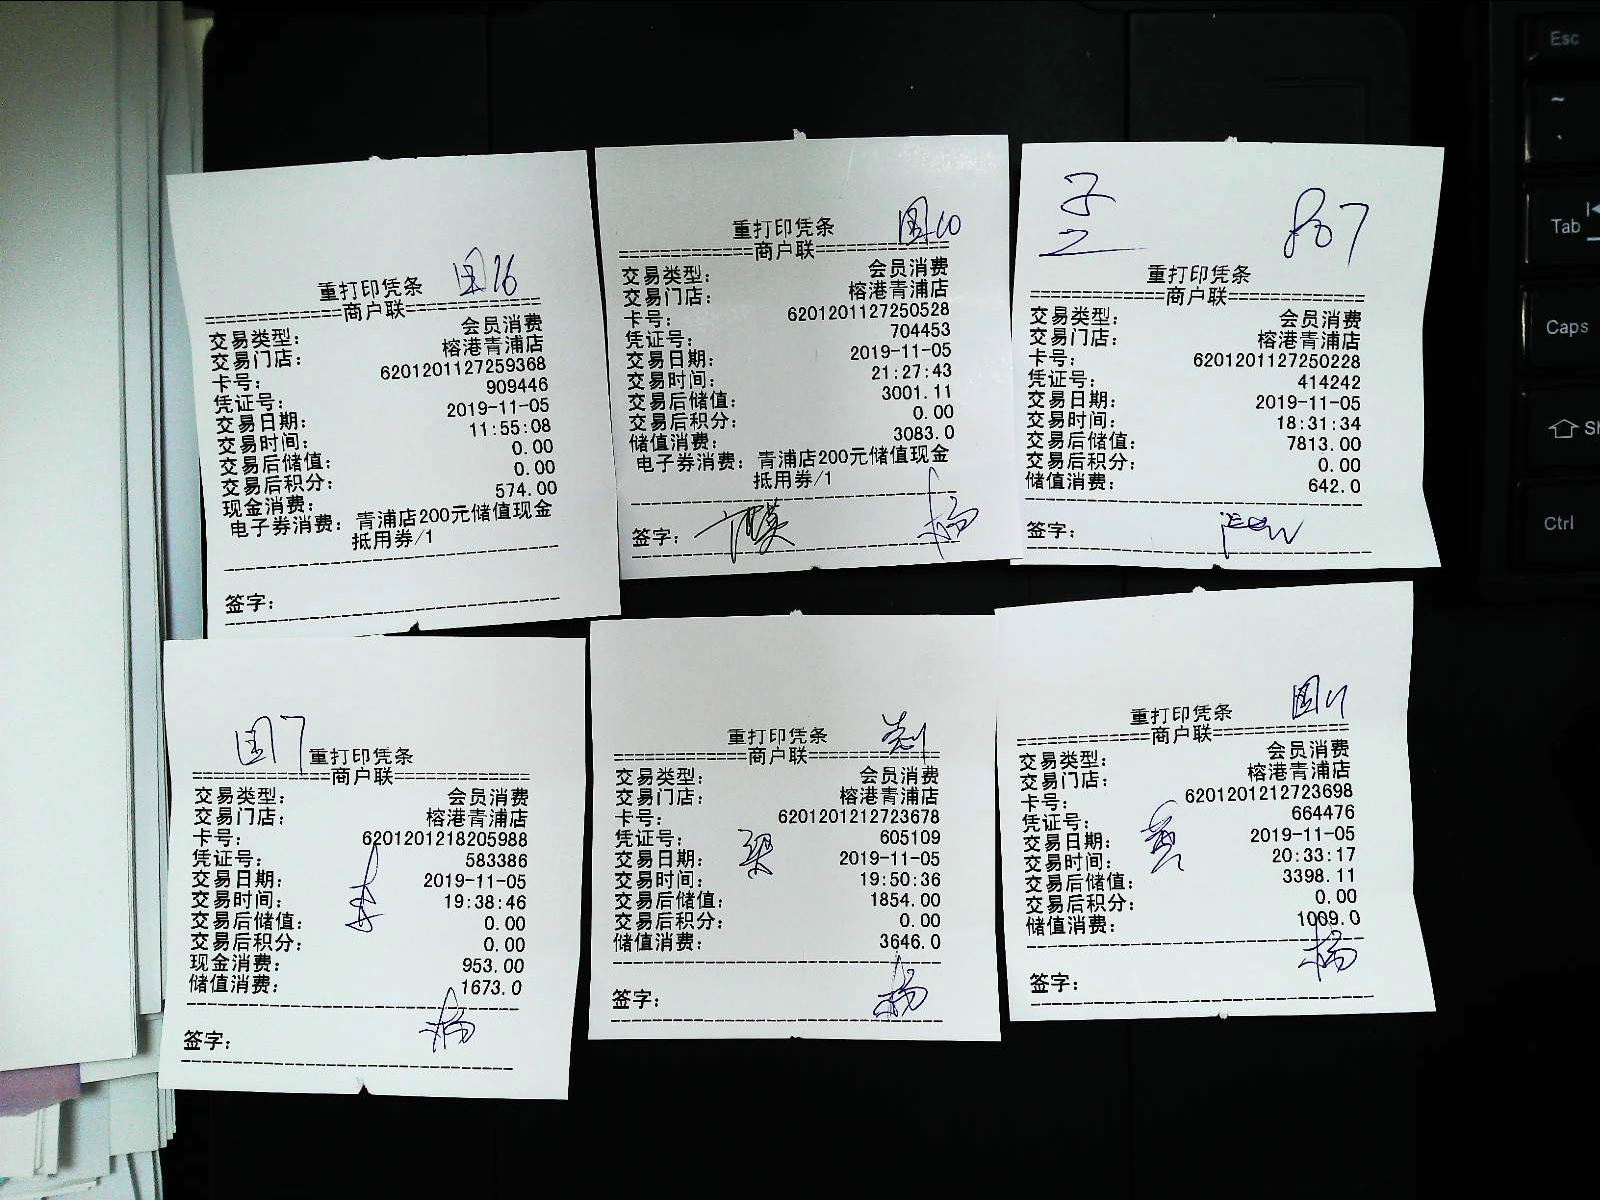 国26
重打印凭条
==============商户联==============
交易类型: 会员消费
交易门店: 榕港青浦店
卡号: 6201201127259368
凭证号: 909446
交易日期: 2019-11-05
交易时间: 11:55:08
交易后储值: 0.00
交易后积分: 0.00
现金消费: 574.00
电子券消费: 青浦店200元储值现金
抵用券/1
签字:
国10
重打印凭条
==============商户联==============
交易类型: 会员消费
交易门店: 榕港青浦店
卡号: 6201201127250528
凭证号: 704453
交易日期: 2019-11-05
交易时间: 21:27:43
交易后储值: 3001.11
交易后积分: 0.00
储值消费: 3083.0
电子券消费: 青浦店200元储值现金
抵用券/1
签字: 杨
807
重打印凭条
==============商户联==============
交易类型: 会员消费
交易门店: 榕港青浦店
卡号: 6201201127250228
凭证号: 414242
交易日期: 2019-11-05
交易时间: 18:31:34
交易后储值: 7813.00
交易后积分: 0.00
储值消费: 642.0
签字:
国7
重打印凭条
==============商户联==============
交易类型: 会员消费
交易门店: 榕港青浦店
卡号: 6201201218205988
凭证号: 583386
交易日期: 2019-11-05
交易时间: 19:38:46
交易后储值: 0.00
交易后积分: 0.00
现金消费: 953.00
储值消费: 1673.0
杨
签字:
重打印凭条
==============商户联==============
交易类型: 会员消费
交易门店: 榕港青浦店
卡号: 6201201212723678
凭证号: 605109
梁
交易日期: 2019-11-05
交易时间: 19:50:36
交易后储值: 1854.00
交易后积分: 0.00
储值消费: 3646.0
签字: 杨
国11
重打印凭条
==============商户联==============
交易类型: 会员消费
交易门店: 榕港青浦店
卡号: 6201201212723698
凭证号: 664476
黄
交易日期: 2019-11-05
交易时间: 20:33:17
交易后储值: 3398.11
交易后积分: 0.00
储值消费: 1009.0
杨
签字:
Esc
~
Tab
Caps
Ctrl